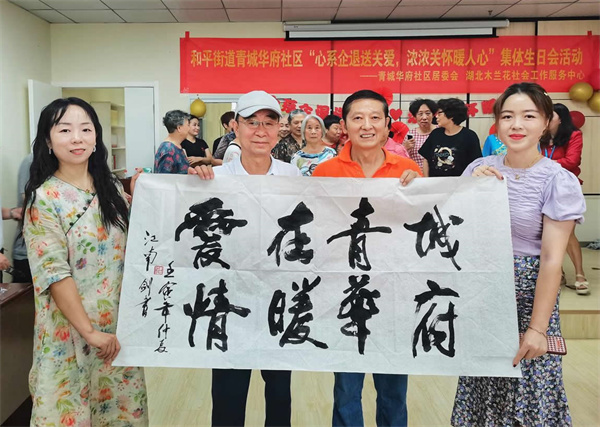 和平街道青城华府社区“心系企退送关爱，浓浓关怀暖人心”集体生日会活动
——青城华府社区居委会 湖北木兰花社会工作服务中心
愛在青城
情暖華府
壬寅年仲夏
江南剑书